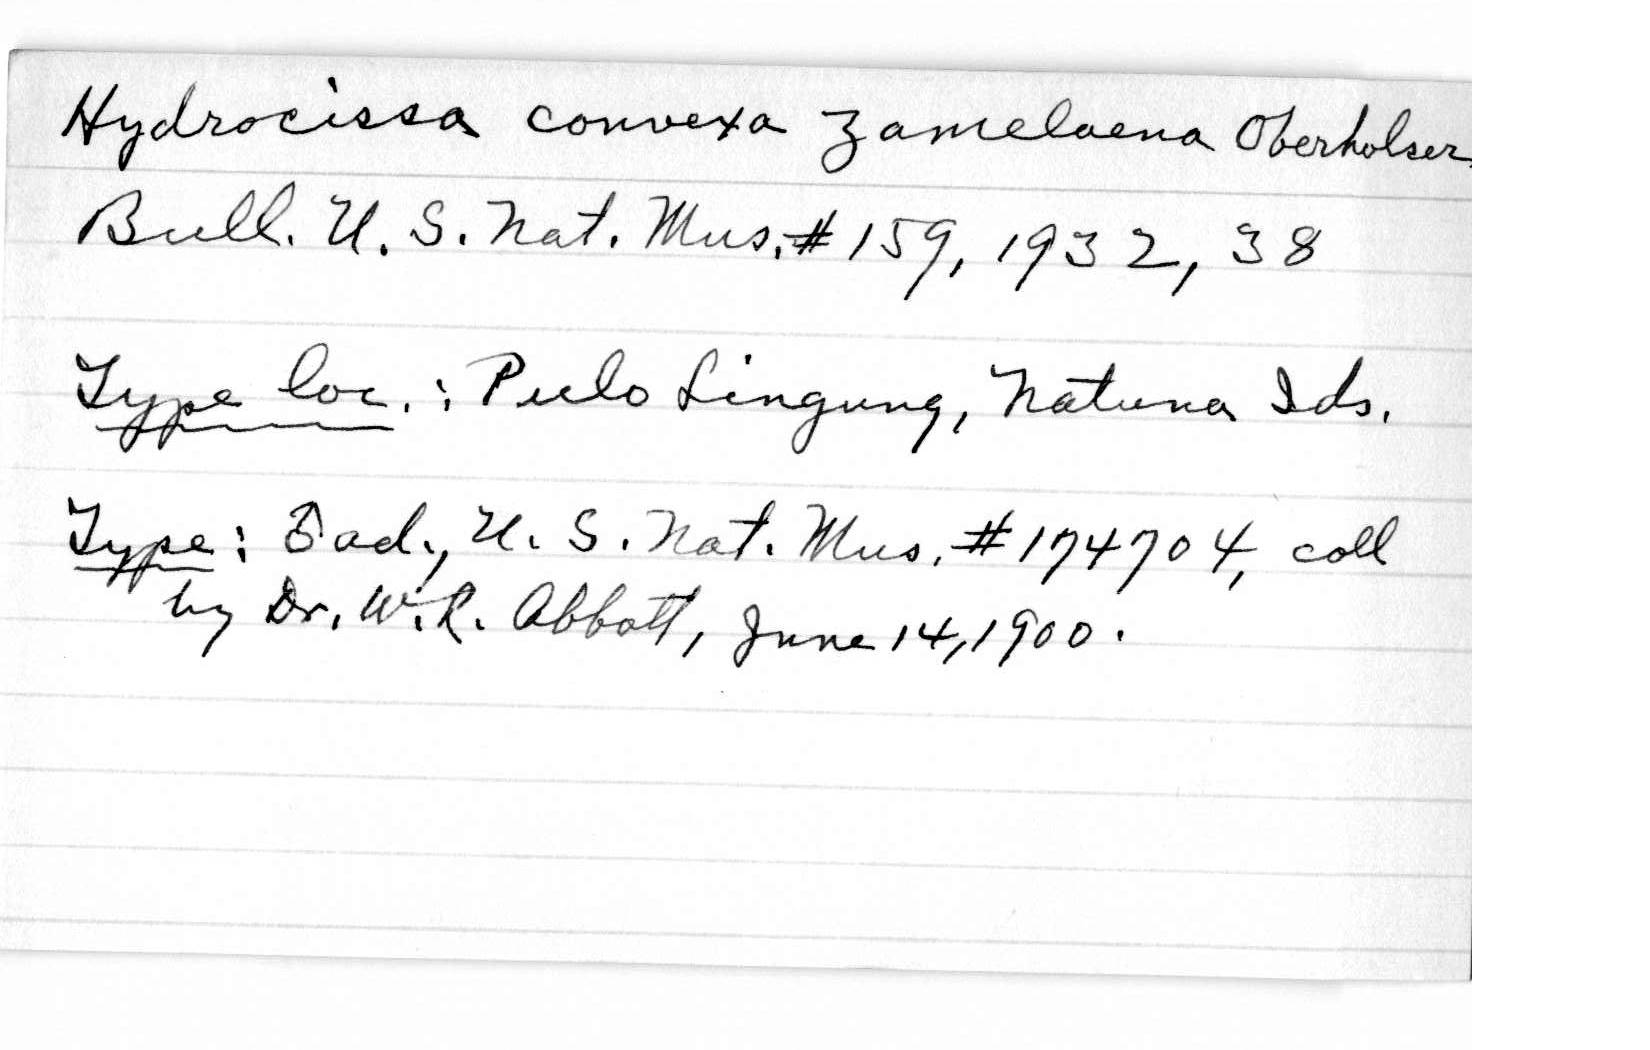 Hydrocissa convexa zamelaena Oberholser
Bull. U. S. Nat. Mus. # 159, 1932, 38
Type loc. : Pulo Lingung, Natuna Ids.
Type : ♂ ad., U. S. Nat. Mus. # 174704, coll
by Dr. W. L. Abbott, June 14, 1900.